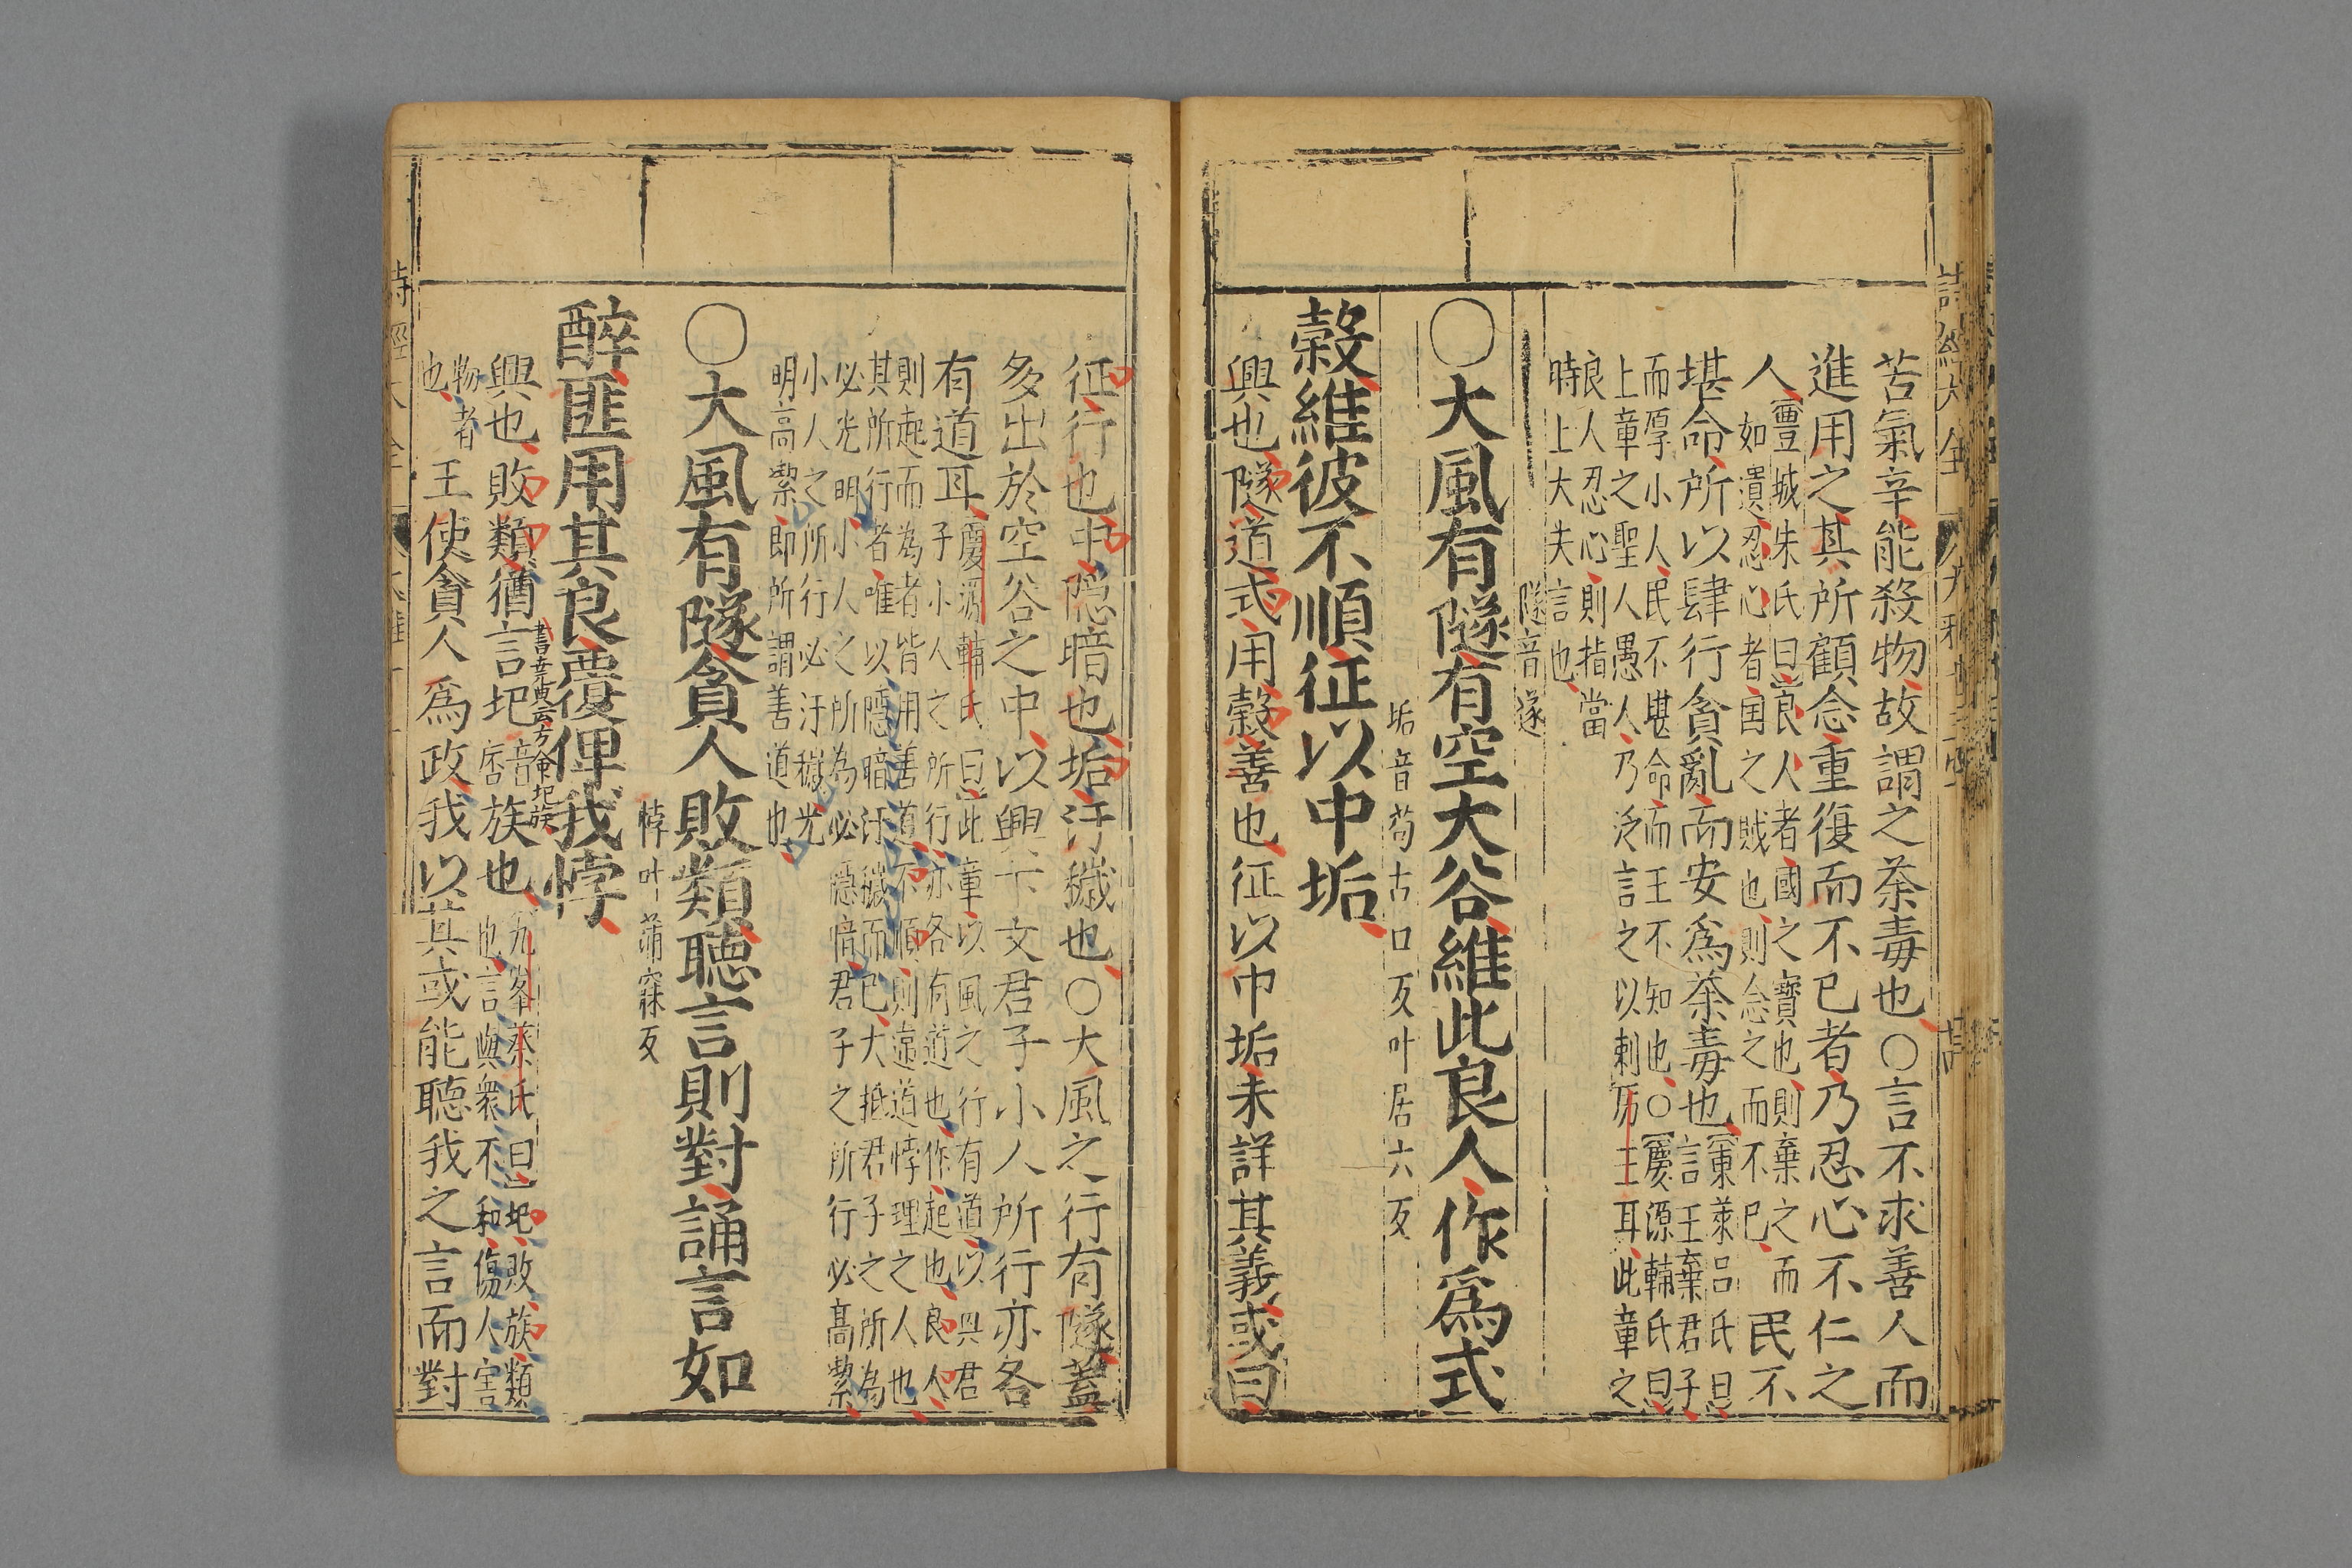 苦氣辛能殺物故謂之荼毒也○言不求善人而
進用之其所顧念重復而不已者乃忍心不仁之
人
豐城朱氏曰良人者國之寶也則棄之而
如遺忍心者国之賊也則念之而不已
民不
堪命所以肆行貪亂而安爲荼毒也
東萊呂氏曰
言王棄君子
而厚小人民不堪命而王不知也○慶源輔氏曰
上章之聖人愚人乃泛言之以刺厉王耳此章之
良人忍心則指當
時上大夫言也
隧音遂
○大風有隧有空大谷維此良人作爲式
垢音苟古口反叶居六反
榖維彼不順征以中垢
興也隧道式用榖善也征以中垢未詳其義或曰
征行也中隱暗也垢汙穢也○大風之行有隧蓋
多出於空谷之中以興下文君子小人所行亦各
有道耳
慶源輔氏曰此章以風之行有道以興君
子小人之所行亦各有道也作起也良人
則起而為者皆用善道不順則違道悖理之人也
其所行者唯以隱暗汙穢而已大抵君子之所為
必光明小人之所為必隱暗君子之所行必髙潔
小人之所行必汙穢光
明高潔即所謂善道也
○大風有隧貪人敗類聽言則對誦言如
悖叶蒲寐反
醉匪用其良覆俾我悖
書堯典云方命圮族
興也敗類猶言圮
音
痞
族也
九峯蔡氏曰圮敗族類
也言與衆不和傷人害
物者
也
王使貪人爲政我以其或能聽我之言而對